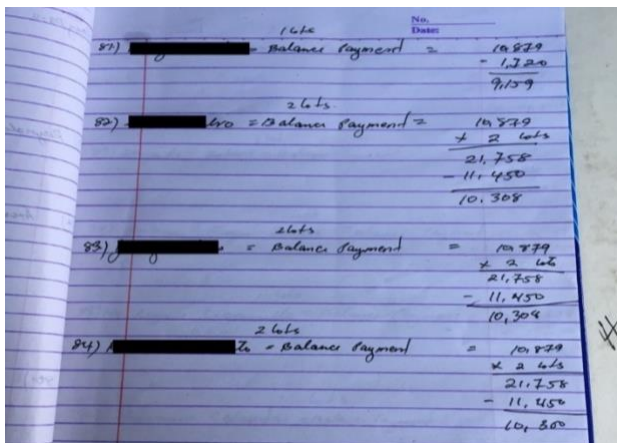 No.
Date:
1 lots
81) - Balance Payment = 10,879
- 1,720
9,159
2 lots.
82) = Balance Payment = 10,879
x 2 lots
21,758
- 11,450
10,308
2 lots
83) = Balance Payment = 10,879
x 2 lots
21,758
- 11,450
10,308
2 lots
84) - Balance Payment = 10,879
x 2 lots
21,758
- 11,450
10,300